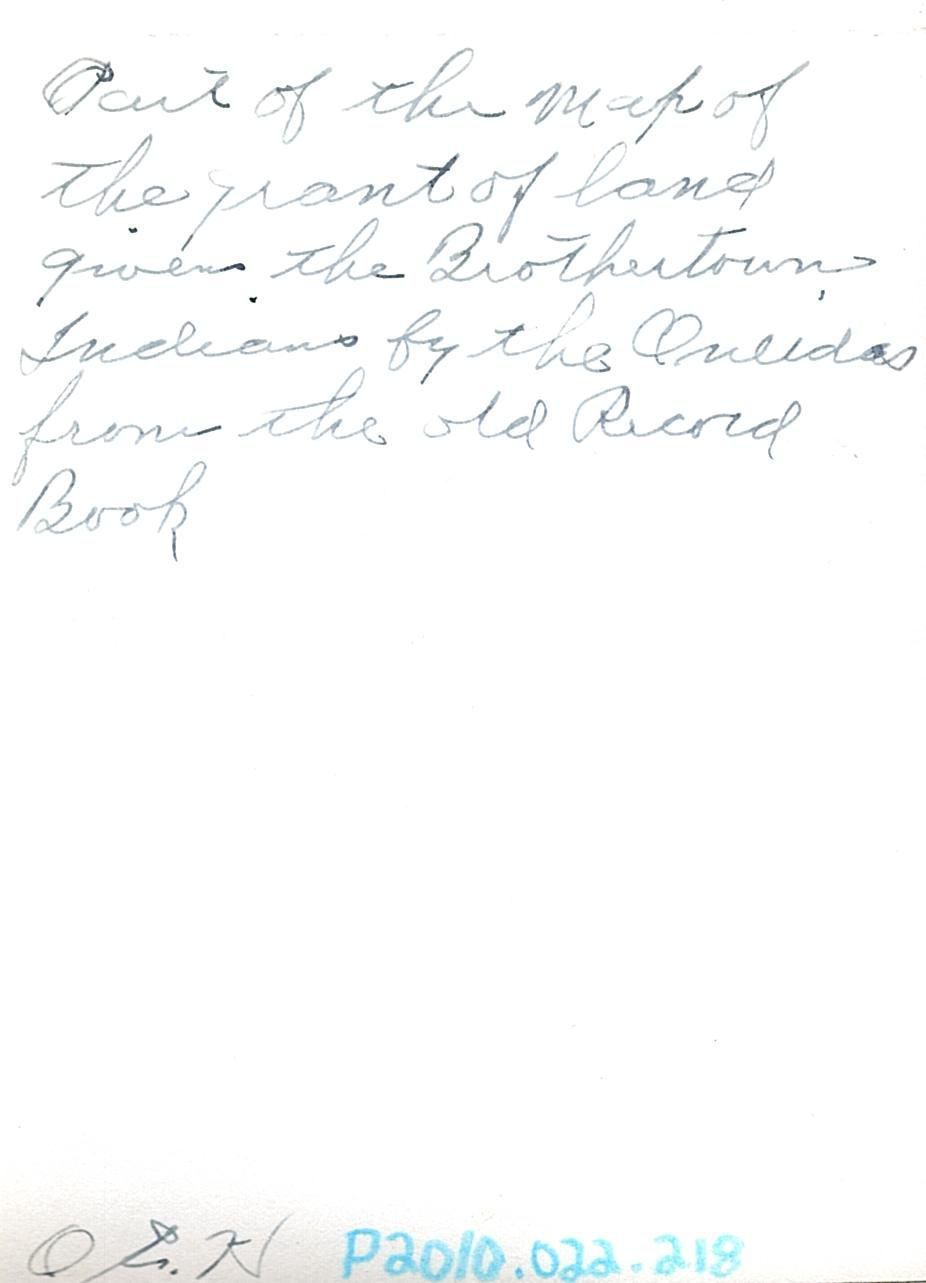 Part of the Map of
the grant of land
given the Brothertown
Indians by the Oneidas
from the old Record
Book
O E. H P2010.022.218